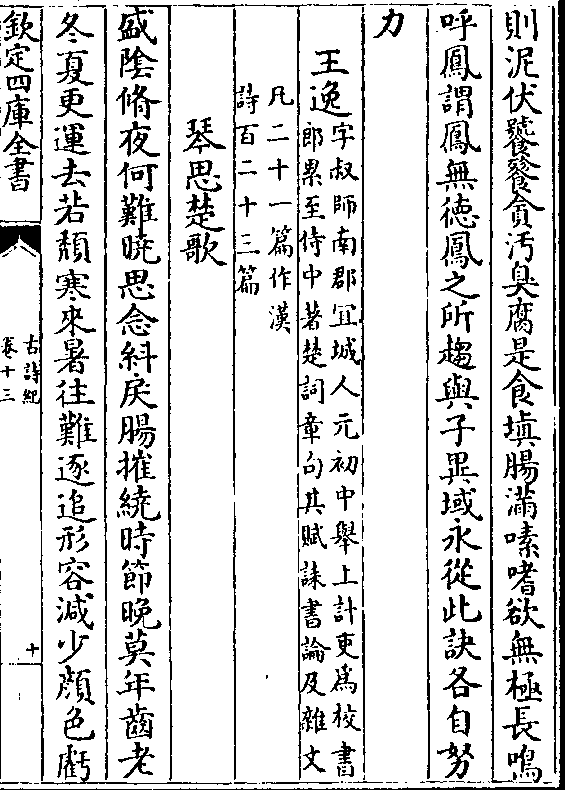 則泥伏饕餮貪汚臭腐是食填腸滿嗉嗜欲無極長鳴
呼鳳謂鳳無徳鳳之所趨與子異域永從此訣各自努
力
王逸字叔師南郡宜城人元初中舉上計吏為校書
郎累至侍中著楚詞章句其賦誄書論及雜文
凡二十一篇作漢
詩百二十三篇
琴思楚歌
盛陰脩夜何難曉思念糾戾腸摧繞時節晚莫年齒老
冬夏更運去若頹寒來暑往難逐追形容減少顔色虧
欽定四庫全書
古詩紀
卷十三
十